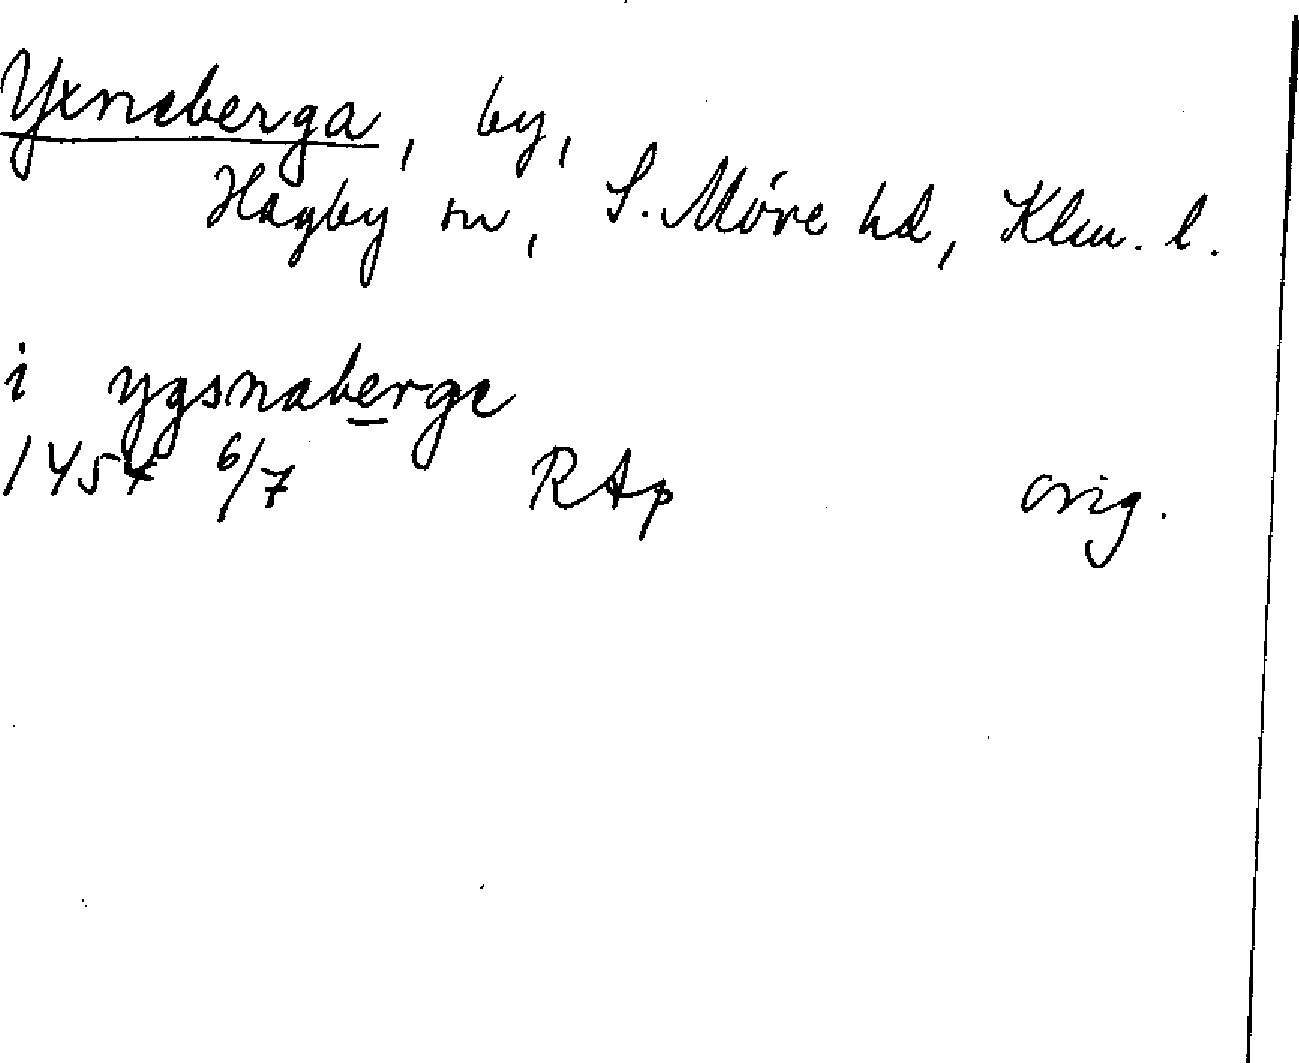 Yxneberga, by,
Hagby sn, S. Möre hd, Klm. l.
i ygsnaberge
1454 6/7 RAp orig.